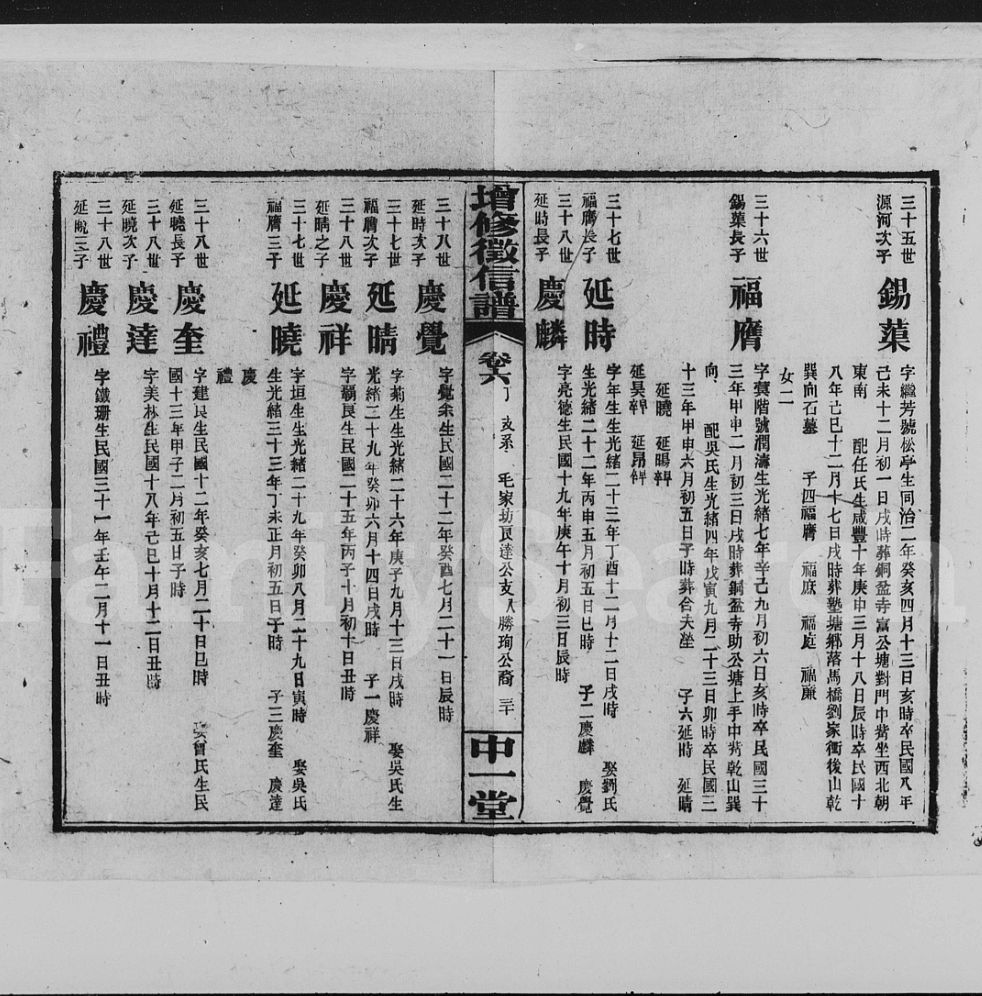 三十五世
源河次子
錫蕖
字繼芳號松亭生同治二年癸亥四月十三日亥時卒民國八年
己未十二月初一日戌時葬銅盆寺富公塘對門中嘴坐西北朝
東南 配任氏生咸豐十年庚申三月十八日辰時卒民國十
八年己巳十二月十七日戌時葬塾塘鄉落馬橋劉家衝後山乾
巽向石墓 子四福膺 福庶 福庭 福廉
女二
三十六世
錫蕖長子
福膺
字蓂階號潤濤生光緒七年辛己九月初六日亥時卒民國三十
三年甲申二月初三日戌時葬銅盆寺助公塘上手中嘴乾山巽
向 配吳氏生光緒四年戊寅九月二十三日卯時卒民國三
十三年甲申六月初五日子時葬合夫塋 子六延時 延晴
延曉 延暘
延昊 延昂
三十七世
福膺長子
延時
字年生生光緒二十三年丁酉十二月十二日戌時 娶劉氏
生光緒二十二年丙申五月初五日巳時 子二慶麟 慶覺
三十八世
延時長子
慶麟
字亮德生民國十九年庚午十月初三日辰時
增修徵信譜
卷六
丁支系 毛家坊良達公支人勝珣公裔 三十
中一堂
三十八世
延時次子
慶覺
字覺余生民國二十二年癸酉七月二十一日辰時
三十七世
福膺次子
延晴
字菊生生光緒二十六年庚子九月十三日戌時 娶吳氏生
光緒二十九年癸卯六月十四日戌時 子一慶祥
三十八世
延晴之子
慶祥
字霸良生民國二十五年丙子十月初十日丑時
三十七世
福膺三子
延曉
字垣生生光緒二十九年癸卯八月二十九日寅時 娶吳氏
生光緒三十三年丁未正月初五日子時 子三慶奎 慶達
慶禮
三十八世
延曉長子
慶奎
字建民生民國十二年癸亥七月二十日巳時 娶曾氏生民
國十三年甲子二月初五日子時
三十八世
延曉次子
慶達
字美林生民國十八年己巳十月十二日丑時
三十八世
延曉三子
慶禮
字鐵珊生民國三十一年壬午二月十一日丑時
FamilySearch